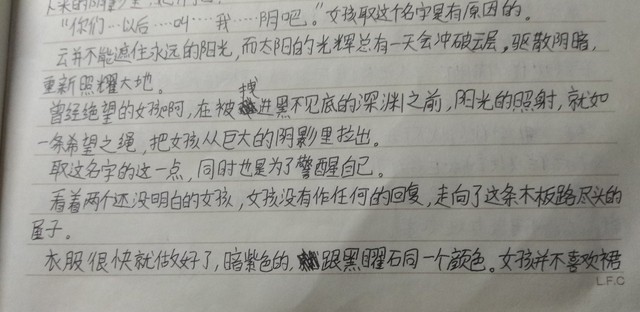 "你们……以后……叫……我……阴吧。"女孩取这个名字是有原因的。
云并不能遮住永远的阳光，而太阳的光辉总有一天会冲破云层，驱散阴暗，
重新照耀大地。
曾经绝望的女孩阿，在被拽进黑不见底的深渊之前，阳光的照射，就如
一条希望之绳，把女孩从巨大的阴影里拉出。
取这名字的这一点，同时也是为了警醒自己。
看着两个还没明白的女孩，女孩没有作任何的回复，走向了这条木板路尽头的
屋子。
衣服很快就做好了，暗紫色的，跟黑曜石同一个颜色。女孩并不喜欢裙
L.F.C